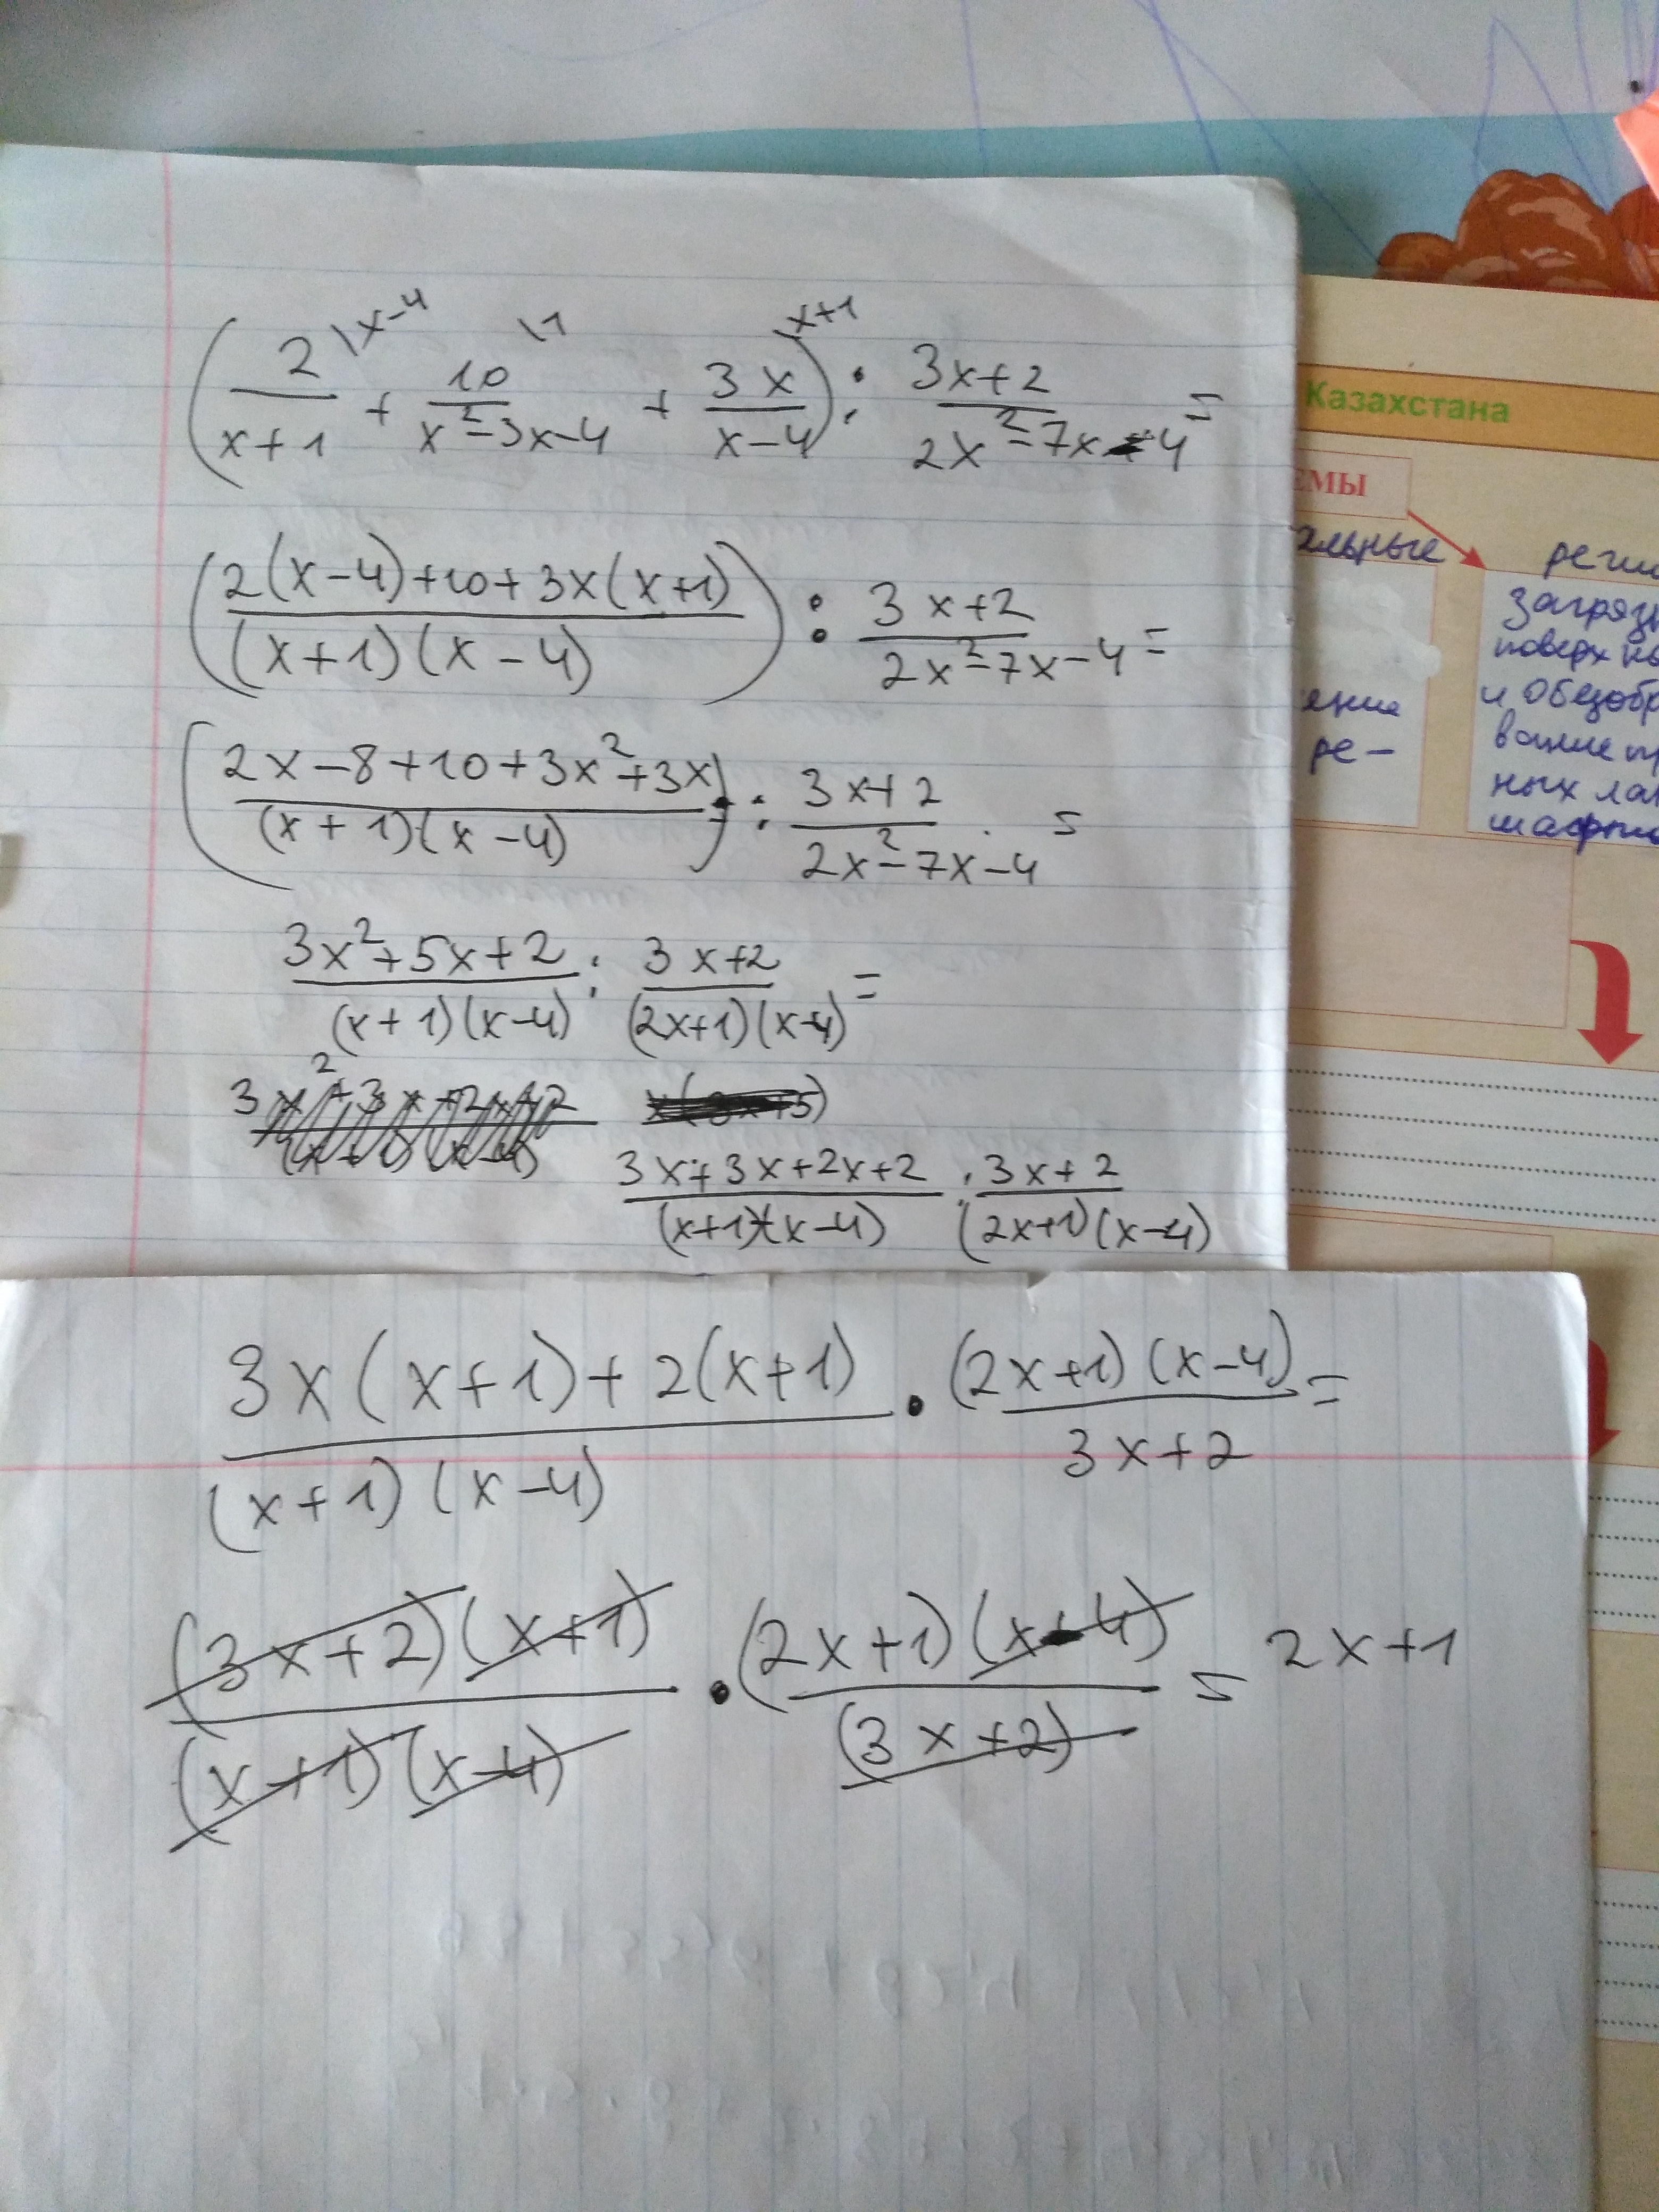 \x-4 \1 x+1
(2/(x+1) + 10/(x²-3x-4) + 3x/(x-4)) : (3x+2)/(2x²-7x-4) =
((2(x-4)+10+3x(x+1))/((x+1)(x-4))) : (3x+2)/(2x²-7x-4) =
((2x-8+10+3x²+3x)/((x+1)(x-4))) : (3x+2)/(2x²-7x-4) =
(3x²+5x+2)/((x+1)(x-4)) : (3x+2)/((2x+1)(x-4)) =
(3x+3x+2x+2)/((x+1)(x-4)) : (3x+2)/((2x+1)(x-4))
(3x(x+1)+2(x+1))/((x+1)(x-4)) · ((2x+1)(x-4))/(3x+2) =
((3x+2)(x+1))/((x+1)(x-4)) · ((2x+1)(x-4))/(3x+2) = 2x+1
Казахстана
ЕМЫ
альные
ение
ре-
реги
загряз
поверхно
и обезобр
вание пр
ных ла
шафто